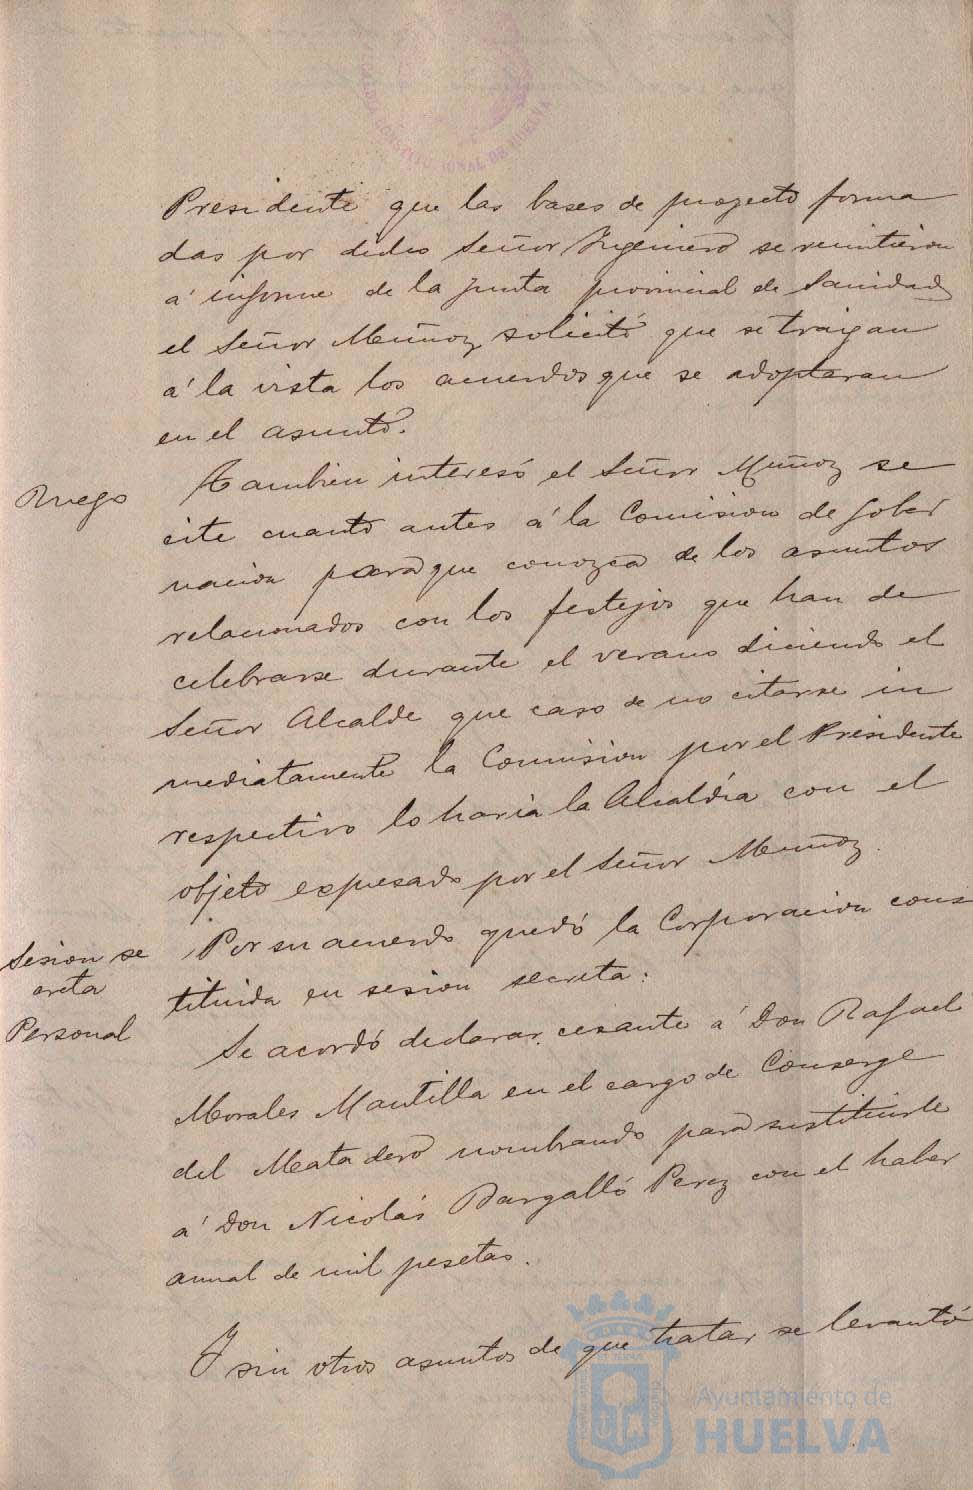 ALCALDIA CONSTITUCIONAL DE HUELVA
Presidente que las bases de proyecto forma
das por dicho Señor Ingeniero se remitieron
á informe de la Junta provincial de Sanidad
el Señor Muñoz solicitó que se traigan
á la vista los acuerdos que se adoptaran
en el asunto.
Ruego
Tambien interesó el Señor Muñoz se
cite cuanto antes á la Comision de Gober
nacion para que conozca de los asuntos
relacionados con los festejos que han de
celebrarse durante el verano diciendo el
Señor Alcalde que caso de no citarse in
mediatamente la Comision por el Presidente
respectivo lo haria la Alcaldía con el
objeto expresado por el Señor Muñoz.
Sesion se
creta
Por su acuerdo quedó la Corporacion cons
tituida en sesion secreta.
Personal
Se acordó declarar cesante á Don Rafael
Morales Mantilla en el cargo de Conserge
del Matadero nombrando para sustituirle
á Don Nicolás Bargalló Perez con el haber
anual de mil pesetas.
Y sin otros asuntos de que tratar se levantó
Ayuntamiento de
HUELVA